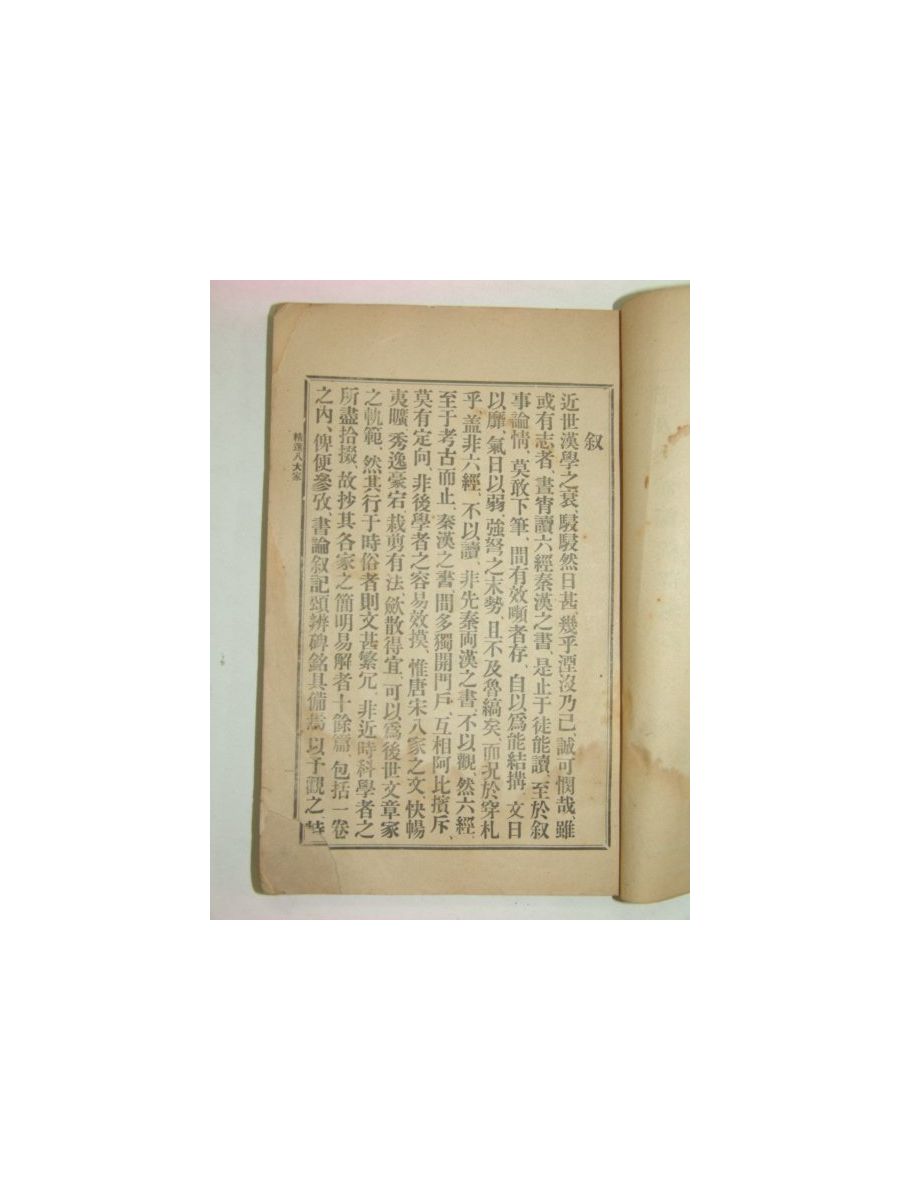 叙
近世漢學之衰、駸駸然日甚、幾乎湮沒乃已、誠可憫哉、雖
或有志者、晝宵讀六經秦漢之書、是止于徒能讀、至於叙
事論情、莫敢下筆、間有效嚬者存、自以爲能結搆、文日
以靡、氣日以弱、強弩之末勢、且不及魯縞矣、而况於穿札
乎、盖非六經、不以讀、非先秦両漢之書、不以觀、然六經、
至于考古而止、秦漢之書、間多獨開門戶、互相阿比擯斥、
莫有定向、非後學者之容易效摸、惟唐宋八家之文、快暢
夷曠、秀逸豪宕、栽剪有法、歛散得宜、可以爲後世文章家
之軌範、然其行于時俗者則文甚繁冗、非近時科學者之
所盡拾掇、故抄其各家之簡明易解者十餘篇、包括一卷
之內、俾便參攷、書論叙記頌辨碑銘具備焉、以予觀之
精選八大家